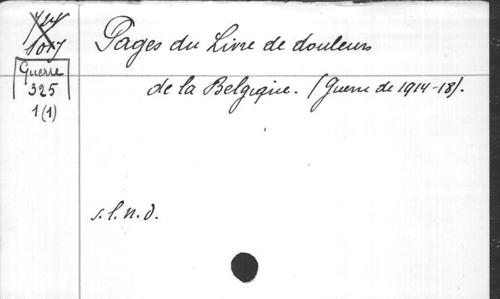 Pages du Livre de douleurs
de la Belgique. (Guerre de 1914-18).
Guerre
325
1(1)
s.l.n.d.